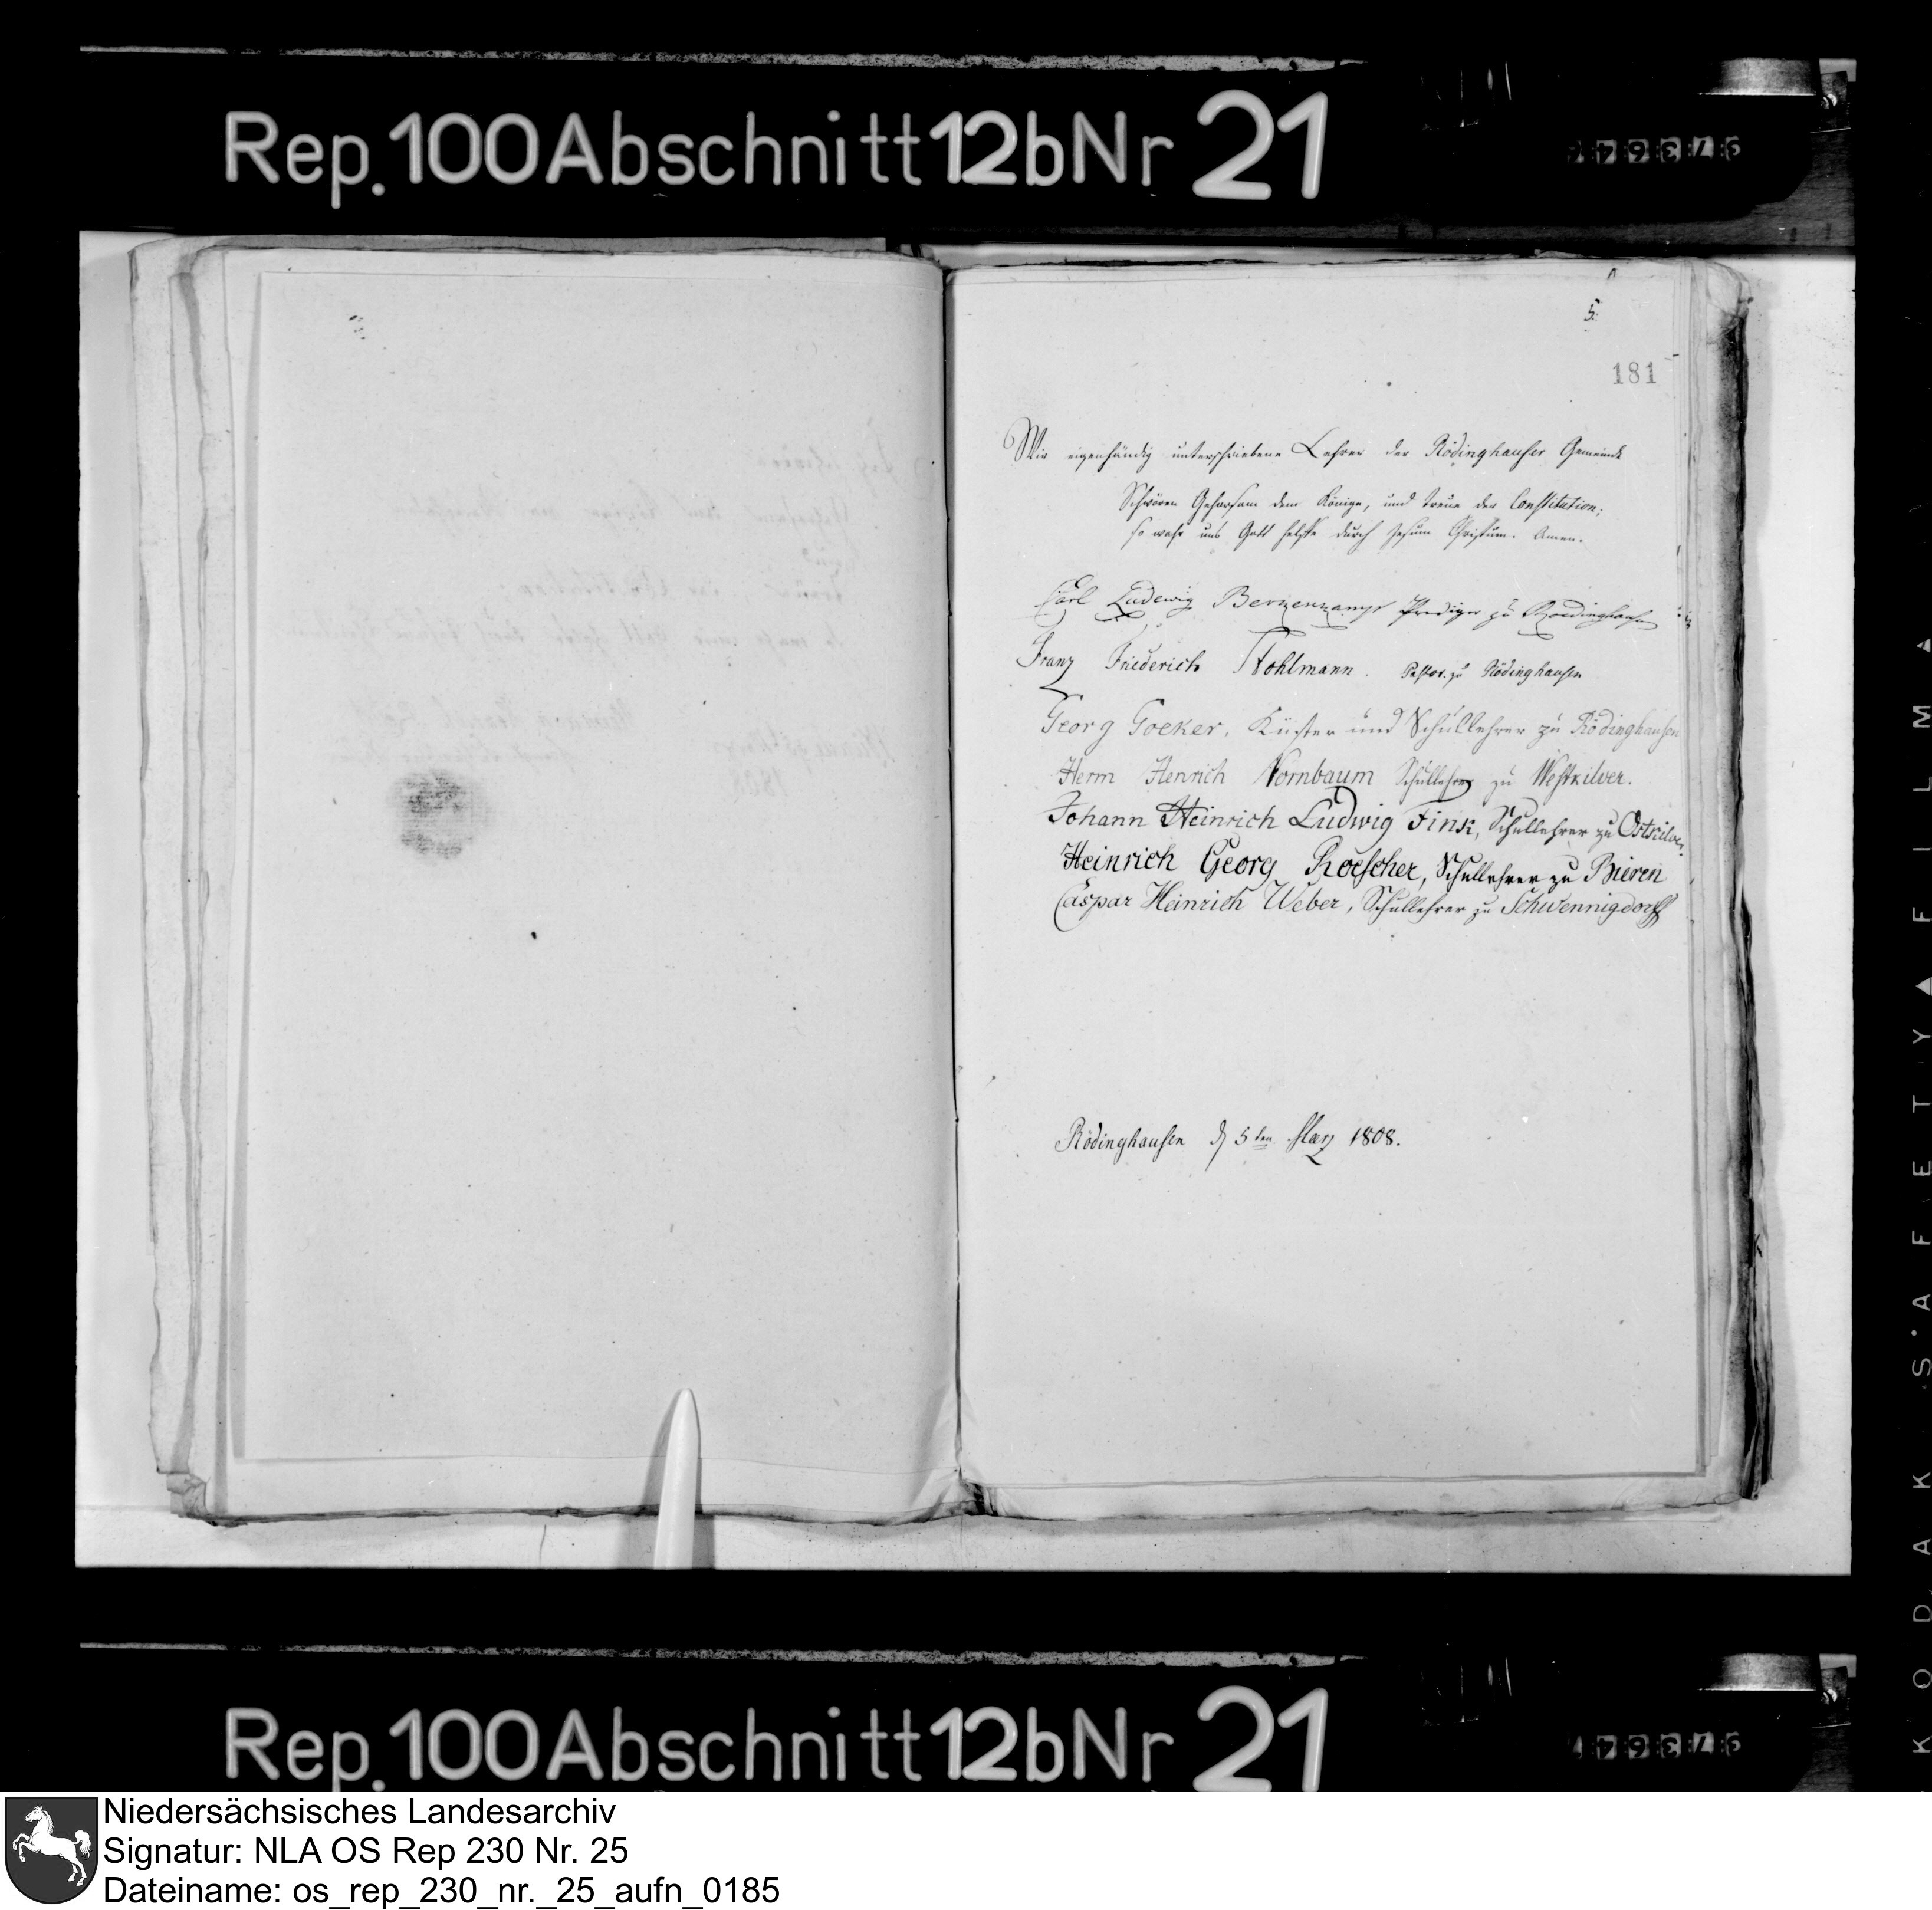 Rep. 100 Abschnitt 12b Nr 21
5.
181
Wir eigenhändig unterschriebene Lehrer der Rödinghauser Gemeinde
Schwören Gehorsam dem Könige, und treue der Constitution;
so wahr uns Gott helffe durch Jesum Christum. Amen.
Carl Ludewig Prediger zu Roedinghausen
Franz Friederich Stohlmann. Pastor. zu Rödinghausen
Georg Goeker, Küster und Schullehrer zu Rödinghausen
Herm Henrich Vornbaum Schullehrer zu Westkilver.
Johann Heinrich Ludwig Fink, Schullehrer zu Ostkilver.
Heinrich Georg Roescher, Schullehrer zu Bieren
Caspar Heinrich Weber, Schullehrer zu Schwennigdorff
Rödinghausen d 5ten März 1808.
Rep. 100 Abschnitt 12b Nr 21
KODAK SAFETY FILM
Niedersächsisches Landesarchiv
Signatur: NLA OS Rep 230 Nr. 25
Dateiname: os_rep_230_nr._25_aufn_0185